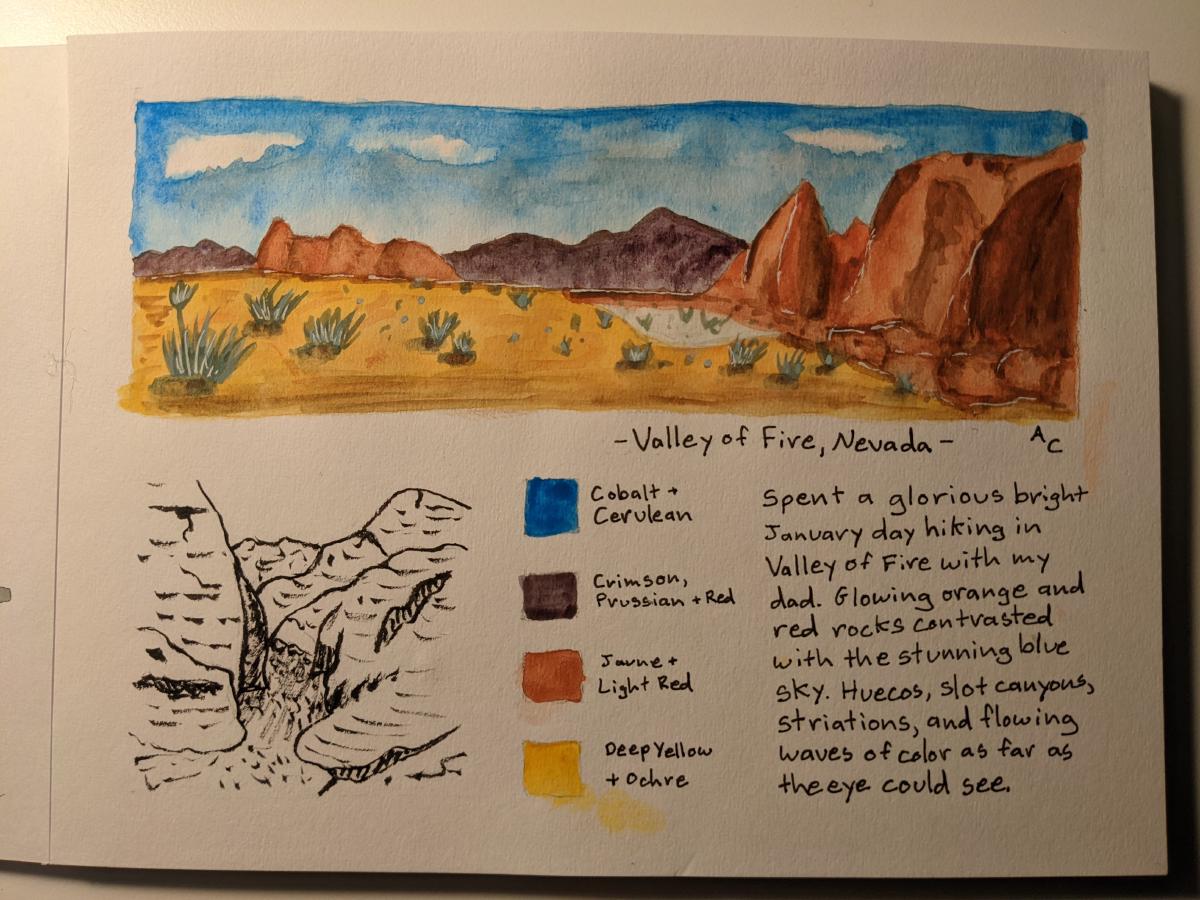 -Valley of Fire, Nevada-
AC
Cobalt +
Cerulean
Crimson,
Prussian + Red
Jaune +
Light Red
Deep Yellow
+ Ochre
Spent a glorious bright
January day hiking in
Valley of Fire with my
dad. Glowing orange and
red rocks contrasted
with the stunning blue
sky. Huecos, slot canyons,
striations, and flowing
waves of color as far as
the eye could see.